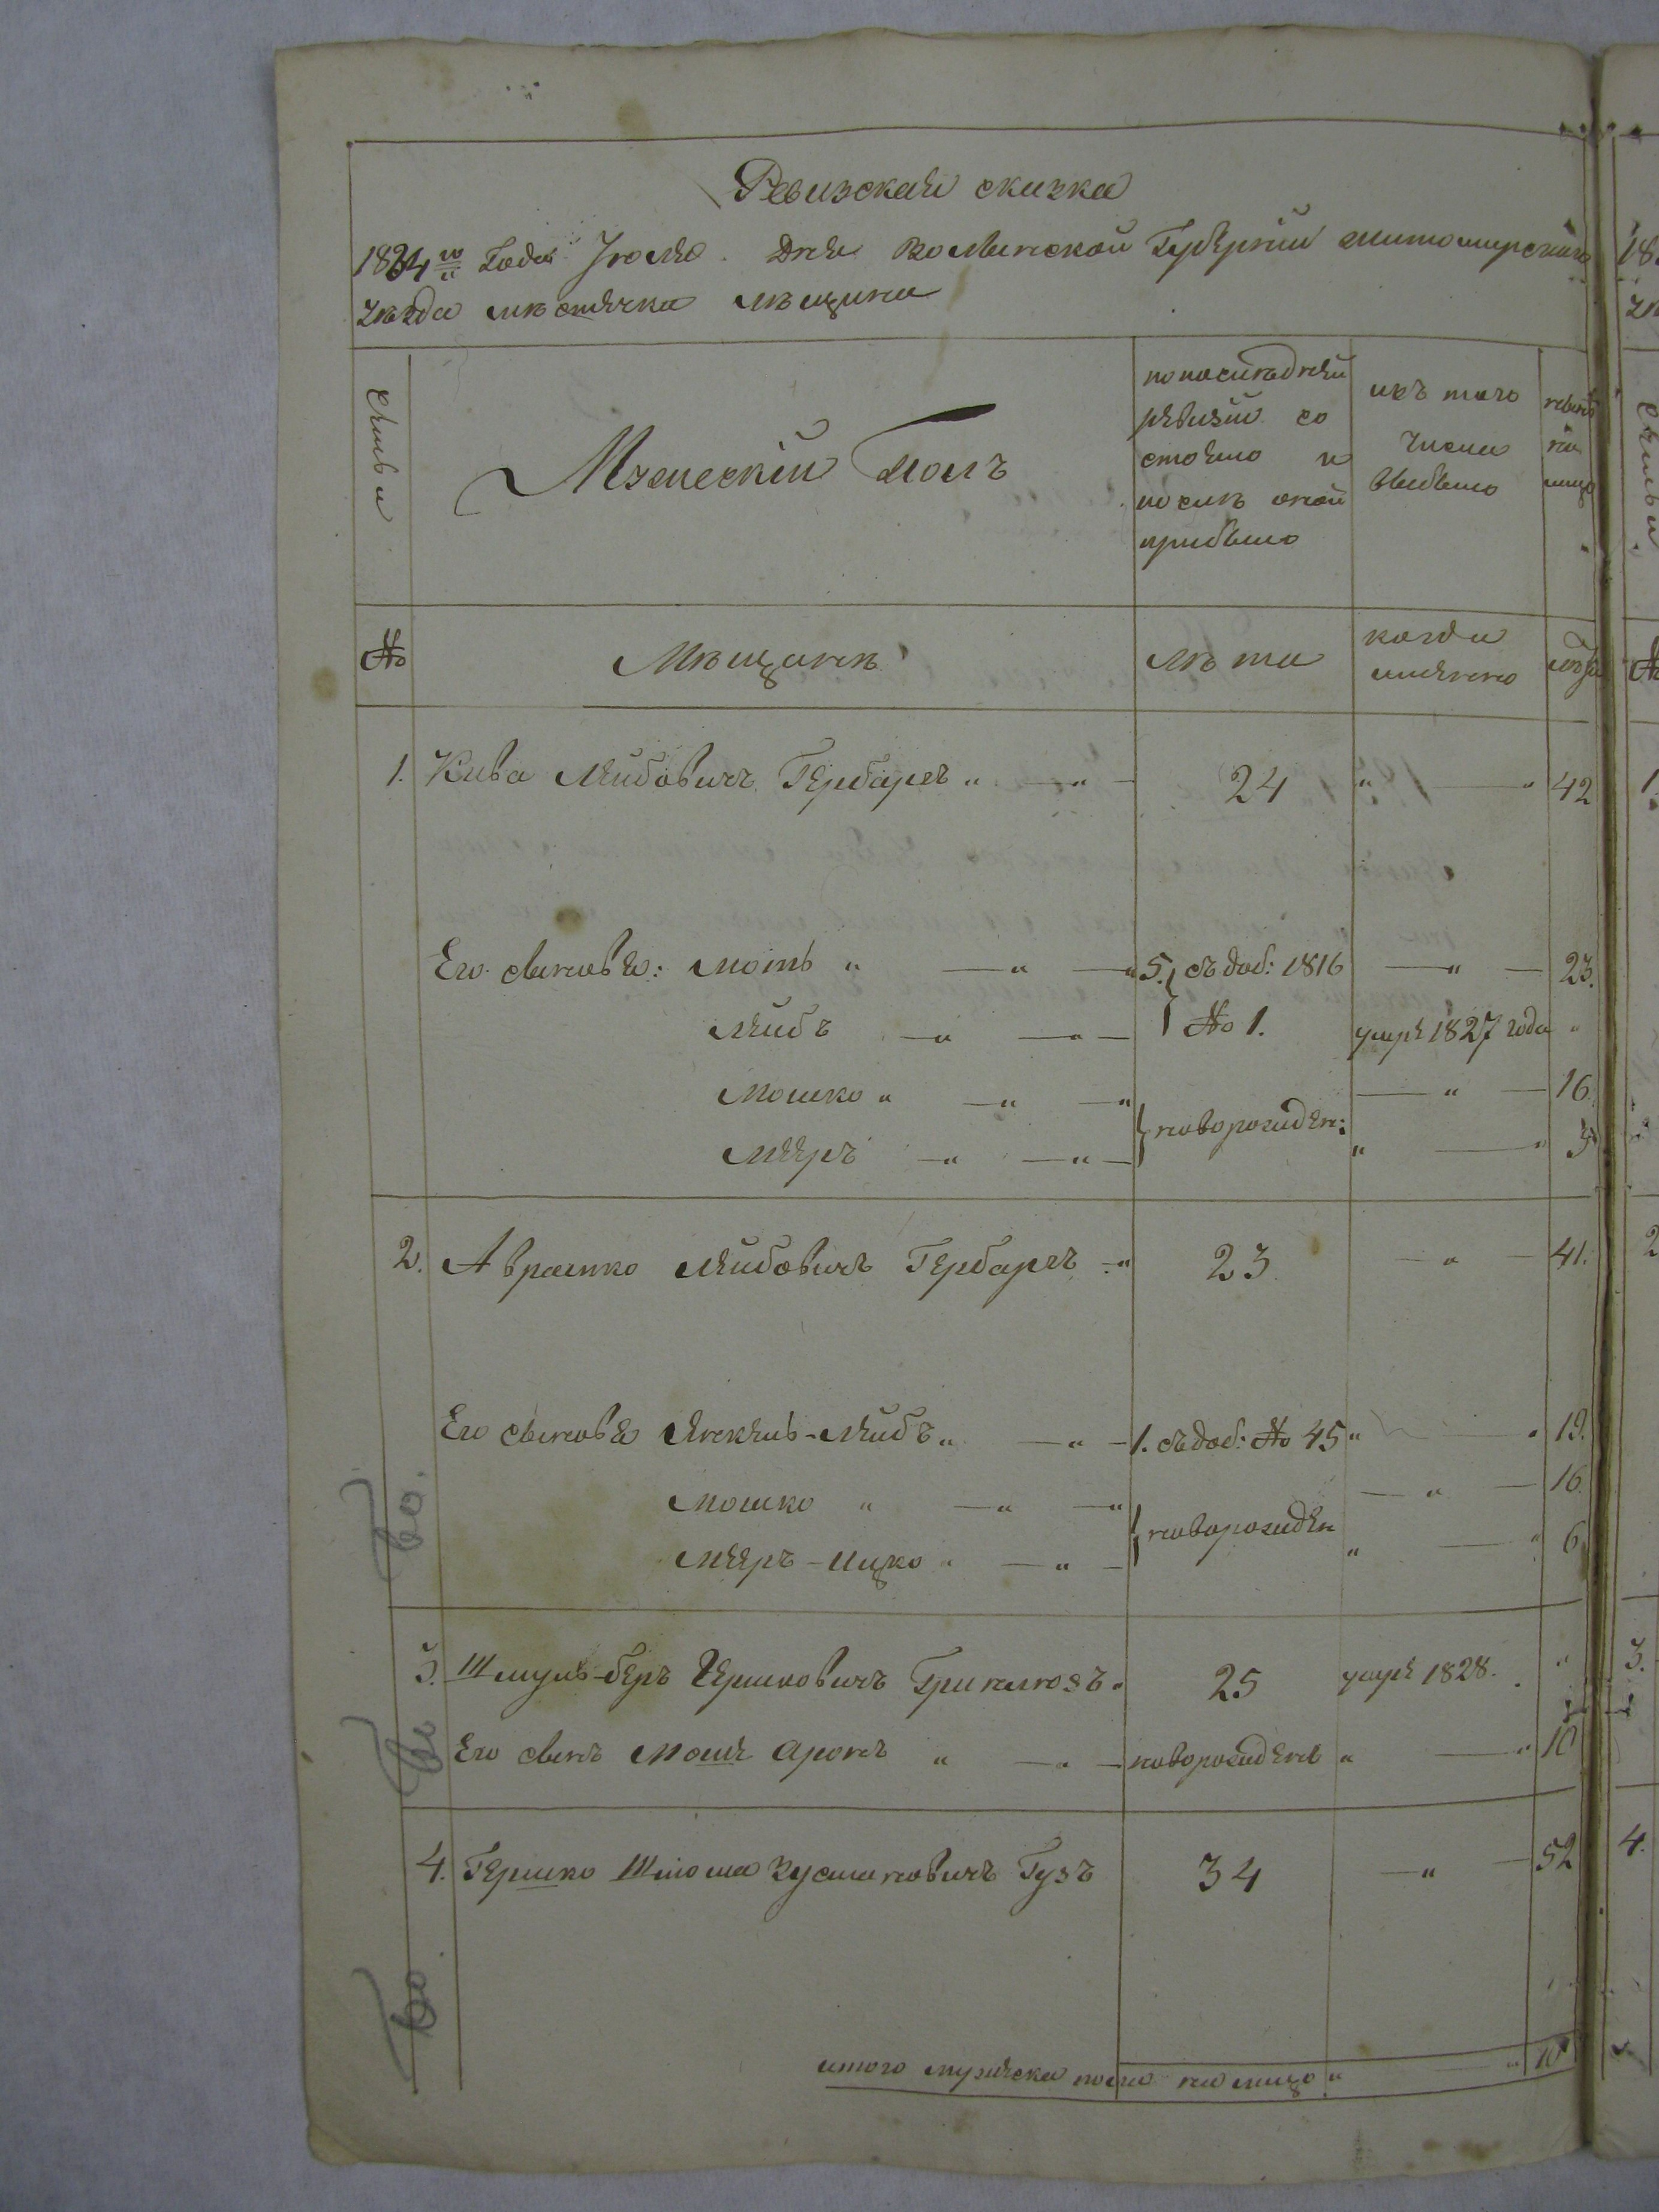 Ревизская сказка
1834го Года Іюля. Дня Волынской Губерніи Житомирскаго
уезда местечка
Семьи
Мужескій Полъ
по последней
ревизіи со
стояло и
после оной
прибыло
изъ того
числа
выбыло
ныне
на
лицо
№
Мещане
лета
когда
именно
лета
1. Кива Лейбовичъ Гербаръ „ — „ — 24 „ — „ 42
Его сыновья: Мотъ „ — „ — „ 5. съ доб: 1816 — „ — 23.
Лейбъ — „ — „ — № 1. умре 1827 года „
Мошко „ — „ — „ новорожден: — „ — 16
Мееръ — „ — „ — „ — „ 3
2. Аврамко Лейбовичъ Гербаръ — „ 23 — „ — 41.
Его сыновья Янкель-Лейбъ „ — „ — 1. съ доб: № 45 „ — „ 19.
Мошко „ — „ — „ новорожден — „ — 16.
Мееръ-Ицко „ — „ — „ — „ 6
3. Шмуль-беръ Гершковичъ „ 25 умре 1828. „
Его сынъ Мошъ Аронъ „ — „ — новорожденъ „ — „ 10
4. Гершко Шлома Зусмановичъ Гузъ 34 — „ — 52
итого мужеска пола на лицо „ — „ 10